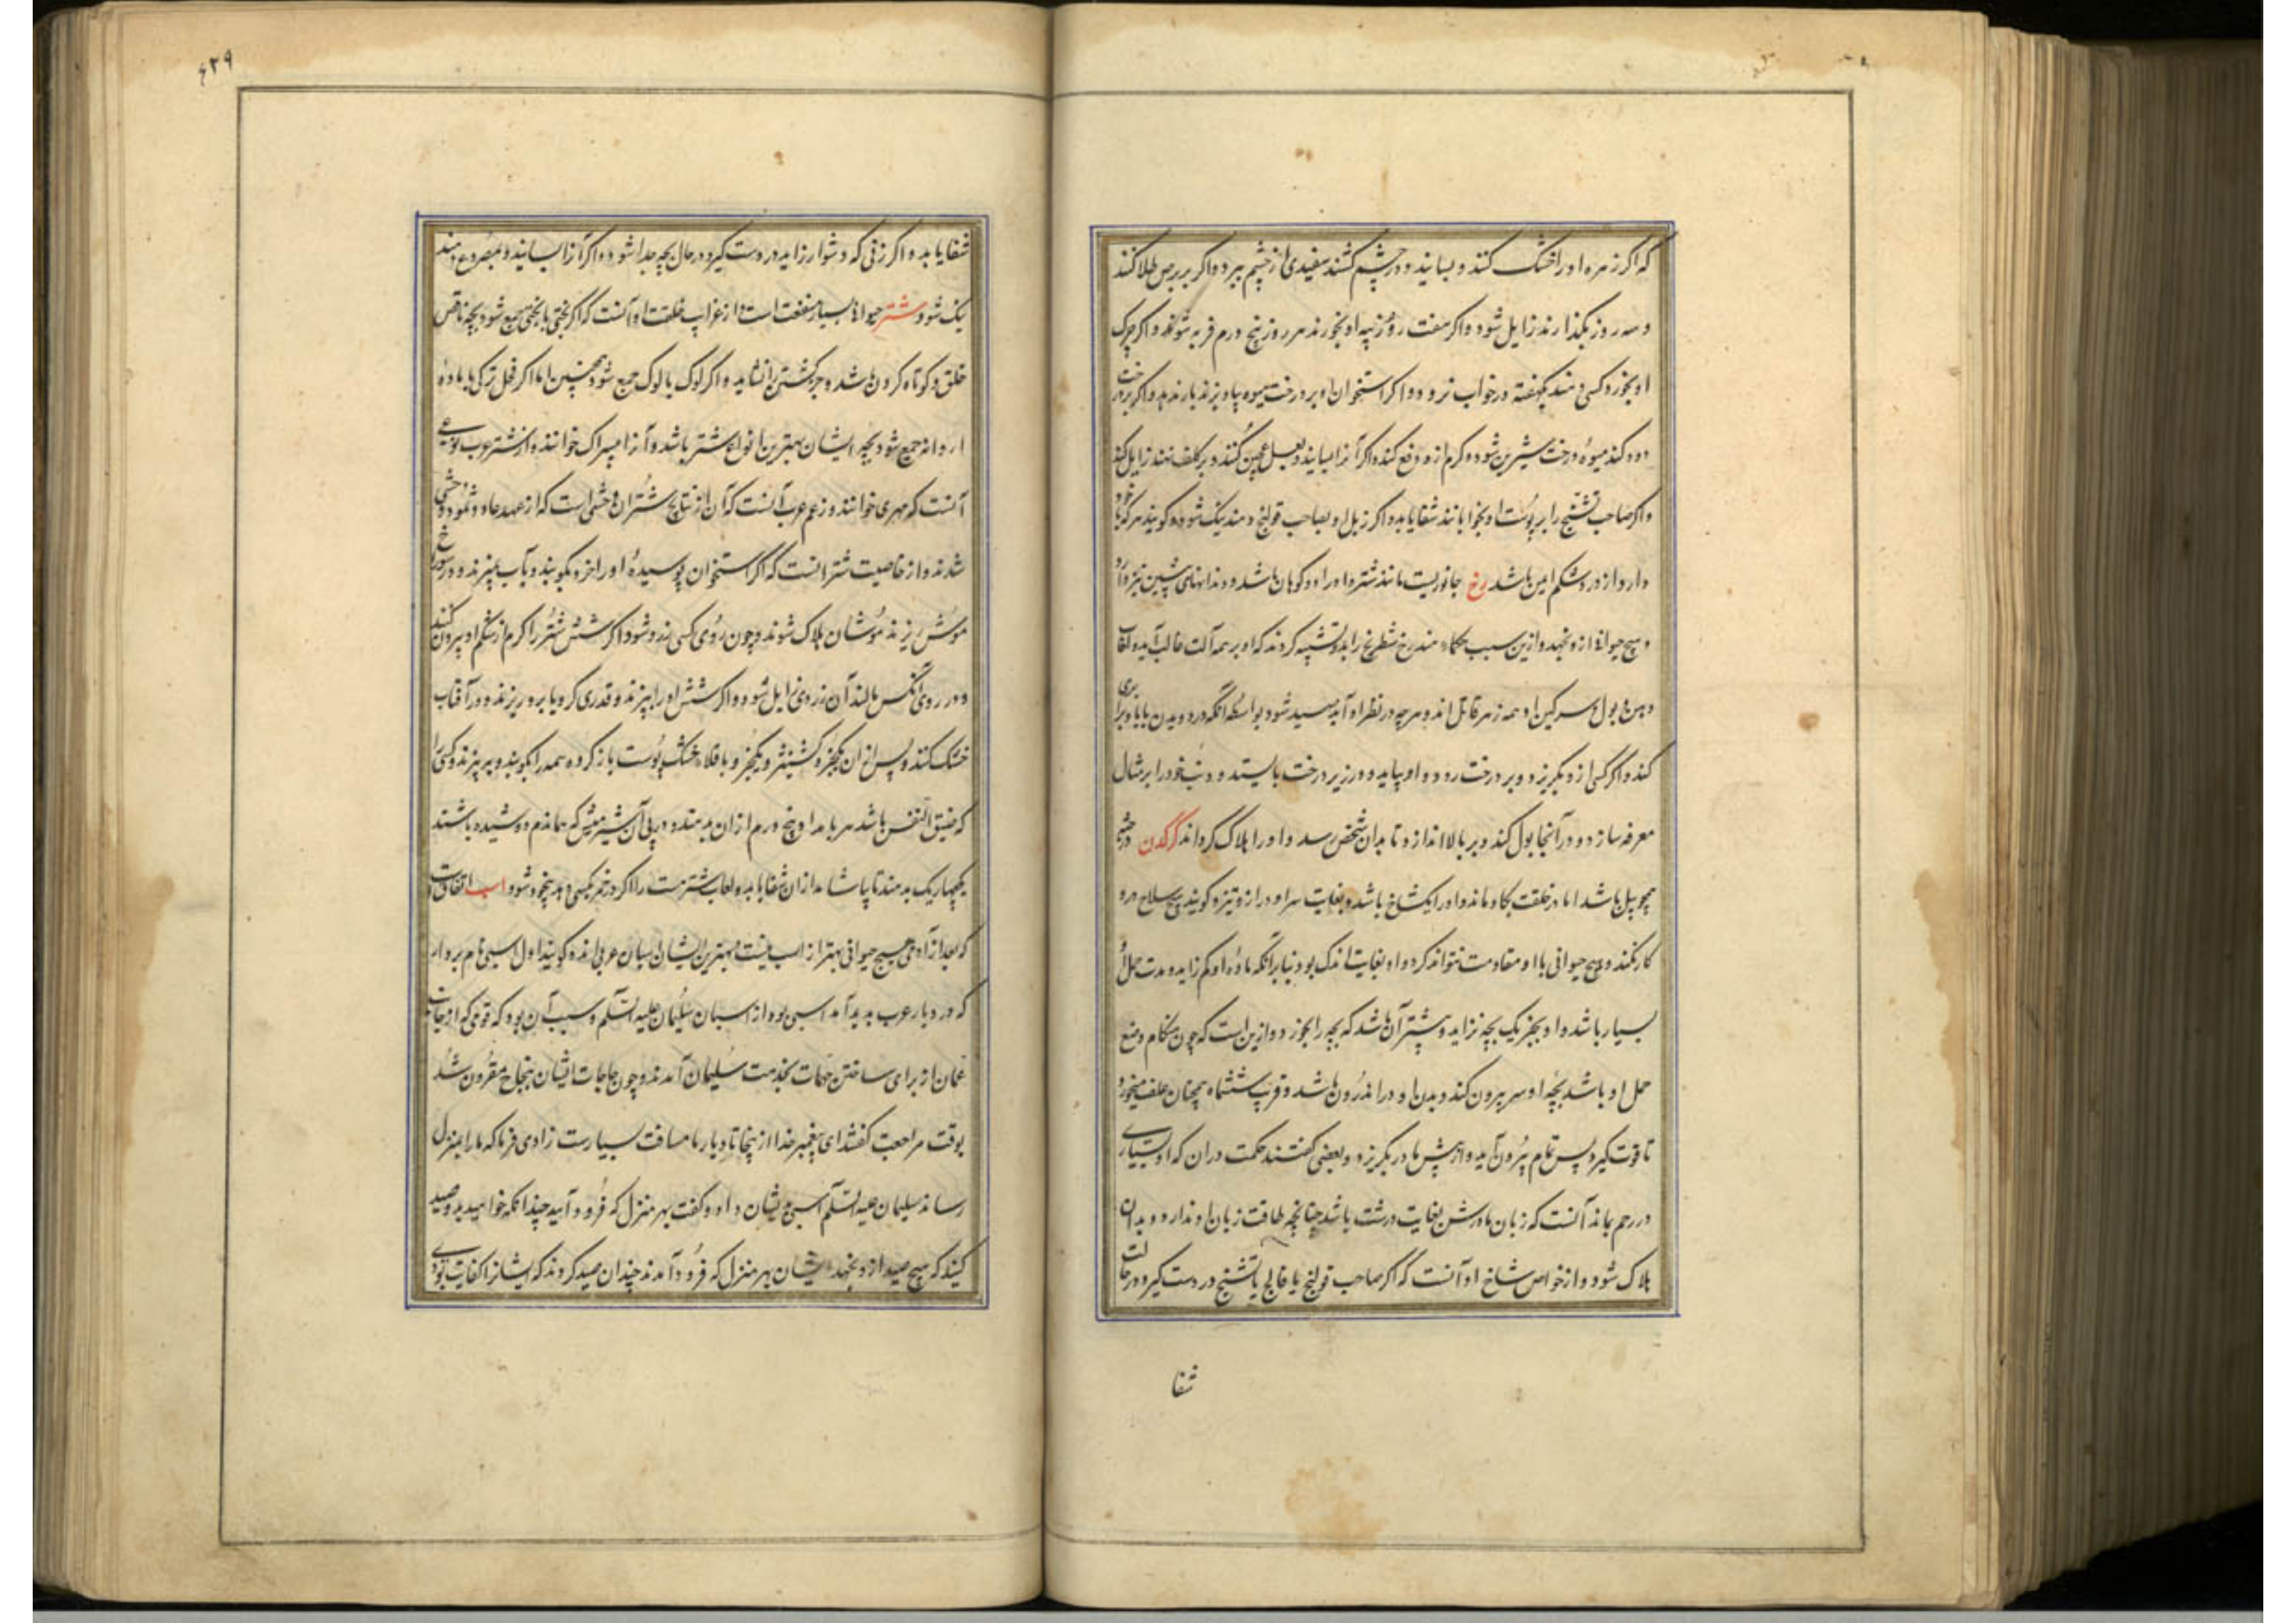 که اگر زهره او را خشک کنند و بسایند و در چشم کشند سفیدی از چشم ببرد و اگر بر برص طلا کنند
و سه روز بگذارند زایل شود و اگر هفت روز پیه او بخورند هر روز پنج درم فربه شوند و اگر چرک
او بخورد کسی دهند یکهفته در خواب نرود و اگر استخوان او بر درخت میوه بیاویزند بار ندهد و اگر بر درخت
دود کند میوه درخت شیرین شود و کرم ازو دفع کند و اگر آنرا بسایند و بعسل عجین کنند و بر کلف نهند زایل کند
و اگر صاحب تشنج را بر پوست او بخوابانند شفا یابد و اگر زبل او بصاحب قولنج دهند نیک شود و گویند هر که با خود
دارد از درد شکم ایمن باشد رخ جانوریست مانند شتر و او را دو کوهان باشد و دندانهای پیشین تیز دارد
و هیچ حیوان ازو نجهد و ازین سبب حکماء هند رخ شطرنج را بدو تشبیه کردند که او بر همه آلت غالب آید و لعاب
دهن و بول و سرگین او همه زهر قاتل اند و هر چه در نظر او آید صید شود بواسطه آنکه در دویدن با باد برابری
کند و اگر کسی ازو بگریزد و بر درخت رود او بیاید و در زیر درخت بایستد و دنب خود را بر مثال
مغرفه سازد و در آنجا بول کند و بر بالا اندازد تا بدان شخص رسد و او را هلاک گرداند کرگدن در جثه
همچو پیل باشد اما در خلقت بگاو ماند و او را یکشاخ باشد و بغایت سر او دراز و تیز و گویند هیچ سلاح درو
کار نکند و هیچ حیوانی با او مقاومت نتواند کرد و او بغایت اندک بود بنا بر آنکه ماده او کم زاید و مدت حمل او
بسیار باشد و او بجز یک بچه نزاید و بیشتر آن باشد که بچه را بخورد و ازین است که چون هنگام وضع
حمل او باشد بچه او سر بیرون کند و بدن او در اندرون باشد و قریب ششماه همچنان علف میخورد
تا قوت گیرد پس تمام بیرون آید و از پیش مادر بگریزد و بعضی گفتند حکمت در آن که او بسیاری
در رحم بماند آنست که زبان مادرش بغایت درشت باشد چنانچه طاقت زبان او ندارد و بدان
هلاک شود و از خواص شاخ او آنست که اگر صاحب قولنج یا فالج یا تشنج در دست گیرد در حالت
شفا
۴۲۹
شفا یابد و اگر زنی که دشوار زاید در دست گیرد در حال بچه جدا شود و اگر آنرا بسایند و بمصروع دهند
نیک شود شتر حیوان بسیار منفعت است و از غرایب خلقت او آنست که اگر بختی با بختی جمع شود بچه ناقص
خلق و کوتاه گردن باشد و جز کشتن را نشاید و اگر لوک با لوک جمع شود همچنین اما اگر فحل ترکی با ماده
اروانه جمع شود بچه ایشان بهترین انواع شتر باشد و آنرا بیسراک خوانند و از شتر عرب نوعی
آنست که مهری خوانند و زعم عرب آنست که آن از نتایج شتران وحشی است که از عهد عاد و ثمود وحشی
شدند و از خاصیت شتر آنست که اگر استخوان پوسیده او را خرد بکوبند و بآب بپزند و در سوراخ
موش ریزند موشان هلاک شوند و چون روی کسی زرد شود اگر شش شتر را کرم از شکم او بیرون کنند
و در روی آنکس مالند آن زردی زایل شود و اگر شش او را بپزند و قدری کرویا برو ریزند و در آفتاب
خشک کنند و پس از آن یکجزو گشنیز و یکجزو باقلاء خشک پوست باز کرده همه را بکوبند و بپزند و کسی را
که ضیق النفس باشد هر بامداد پنج درم از آن بدهند و در پی آن شیر میش که هماندم دوشیده باشند
یکچهاریک بدهند تا بیاشامد از آن شفا یابد و لعاب شتر مست را اگر در خمر بکسی دهد بیخود شود اسب اتفاق است
که بعد از آدمی هیچ حیوانی بهتر از اسب نیست و بهترین ایشان اسبان عربی اند و گویند اول اسبی نام بردار
که در دیار عرب پدید آمد اسبی بود از اسبان سلیمان علیه السلام و سبب آن بود که قومی که از جانب
عمان از برای ساختن مهمات بخدمت سلیمان آمدند و چون حاجات ایشان بنجاح مقرون شد
بوقت مراجعت گفتند ای پیغمبر خدا از اینجا تا دیار ما مسافت بسیارست زادی فرما که ما را بمنزل
رساند سلیمان علیه السلام اسبی بدیشان داد و گفت بهر منزل که فرود آیید چندانکه خواهید بدو صید
کنید که هیچ صید ازو نجهد ایشان بهر منزل که فرود آمدند چندان صید کردند که ایشانرا کفایت بودی